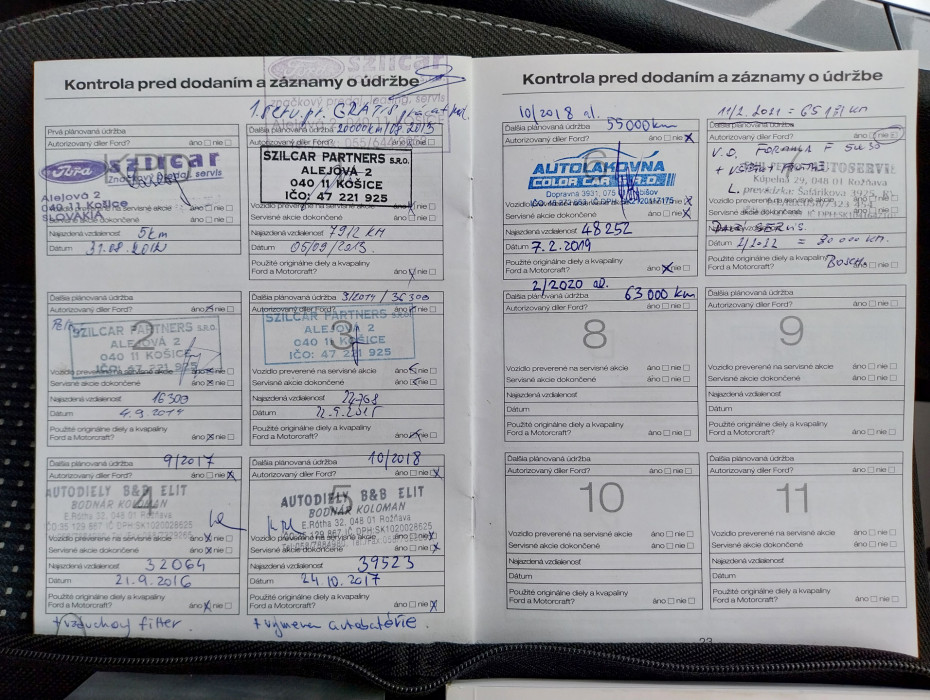 Kontrola pred dodaním a záznamy o údržbe
1. serv. pr. GRATIS
Prvá plánovaná údržba
Autorizovaný díler Ford? áno nie
Ford szilcar
značkový predaj, servis
Alejová 2
040 11 Košice
SLOVAKIA
Najazdená vzdialenosť 5km
Dátum 31.08.2012
Ďalšia plánovaná údržba 20000km/08 2013
Autorizovaný díler Ford? áno nie
SZILCAR PARTNERS S.R.O.
ALEJOVÁ 2
040 11 KOŠICE
IČO: 47 221 925
Vozidlo preverené na servisné akcie áno nie
Servisné akcie dokončené áno nie
Najazdená vzdialenosť 7912 KM
Dátum 05/09/2013
Použité originálne diely a kvapaliny
Ford a Motorcraft? áno nie
Ďalšia plánovaná údržba
Autorizovaný díler Ford? áno nie
2
SZILCAR PARTNERS S.R.O.
ALEJOVÁ 2
040 11 KOŠICE
IČO: 47 221 925
Vozidlo preverené na servisné akcie áno nie
Servisné akcie dokončené áno nie
Najazdená vzdialenosť 16300
Dátum 4.9.2014
Použité originálne diely a kvapaliny
Ford a Motorcraft? áno nie
Ďalšia plánovaná údržba
Autorizovaný díler Ford? áno nie
SZILCAR PARTNERS S.R.O.
ALEJOVÁ 2
040 11 KOŠICE
IČO: 47 221 925
Vozidlo preverené na servisné akcie áno nie
Servisné akcie dokončené áno nie
Najazdená vzdialenosť
Dátum
Použité originálne diely a kvapaliny
Ford a Motorcraft? áno nie
Ďalšia plánovaná údržba 9/2017
Autorizovaný díler Ford? áno nie
4
AUTODIELY B&B ELIT
BODNÁR KOLOMAN
E.Rótha 32, 048 01 Rožňava
Vozidlo preverené na servisné akcie áno nie
Servisné akcie dokončené áno nie
Najazdená vzdialenosť 32064
Dátum 21.9.2016
Použité originálne diely a kvapaliny
Ford a Motorcraft? áno nie
+ vzduchový filter.
Ďalšia plánovaná údržba 10/2018
Autorizovaný díler Ford? áno nie
5
AUTODIELY B&B ELIT
BODNÁR KOLOMAN
E.Rótha 32, 048 01 Rožňava
Vozidlo preverené na servisné akcie áno nie
Servisné akcie dokončené áno nie
Najazdená vzdialenosť 39523
Dátum 24.10.2017
Použité originálne diely a kvapaliny
Ford a Motorcraft? áno nie
+ výmena autobatérie.
Kontrola pred dodaním a záznamy o údržbe
10/2018 al.
Ďalšia plánovaná údržba 55000km
Autorizovaný díler Ford? áno nie
AUTOLAKOVŇA
COLOR CAR S.R.O.
Vozidlo preverené na servisné akcie áno nie
Servisné akcie dokončené áno nie
Najazdená vzdialenosť 48252
Dátum 7.2.2019
Použité originálne diely a kvapaliny
Ford a Motorcraft? áno nie
Ďalšia plánovaná údržba
Autorizovaný díler Ford? áno nie
V.O. FORMULA F 5W30
AUTOSERVIS
Kúpeľná 29, 048 01 Rožňava
Dátum 2/2022 = 80 000 km.
Použité originálne diely a kvapaliny
Ford a Motorcraft? Bosch áno nie
2/2020 al.
Ďalšia plánovaná údržba 63 000 km
Autorizovaný díler Ford? áno nie
8
Vozidlo preverené na servisné akcie áno nie
Servisné akcie dokončené áno nie
Najazdená vzdialenosť
Dátum
Použité originálne diely a kvapaliny
Ford a Motorcraft? áno nie
Ďalšia plánovaná údržba
Autorizovaný díler Ford? áno nie
9
Vozidlo preverené na servisné akcie áno nie
Servisné akcie dokončené áno nie
Najazdená vzdialenosť
Dátum
Použité originálne diely a kvapaliny
Ford a Motorcraft? áno nie
Ďalšia plánovaná údržba
Autorizovaný díler Ford? áno nie
10
Vozidlo preverené na servisné akcie áno nie
Servisné akcie dokončené áno nie
Najazdená vzdialenosť
Dátum
Použité originálne diely a kvapaliny
Ford a Motorcraft? áno nie
Ďalšia plánovaná údržba
Autorizovaný díler Ford? áno nie
11
Vozidlo preverené na servisné akcie áno nie
Servisné akcie dokončené áno nie
Najazdená vzdialenosť
Dátum
Použité originálne diely a kvapaliny
Ford a Motorcraft? áno nie